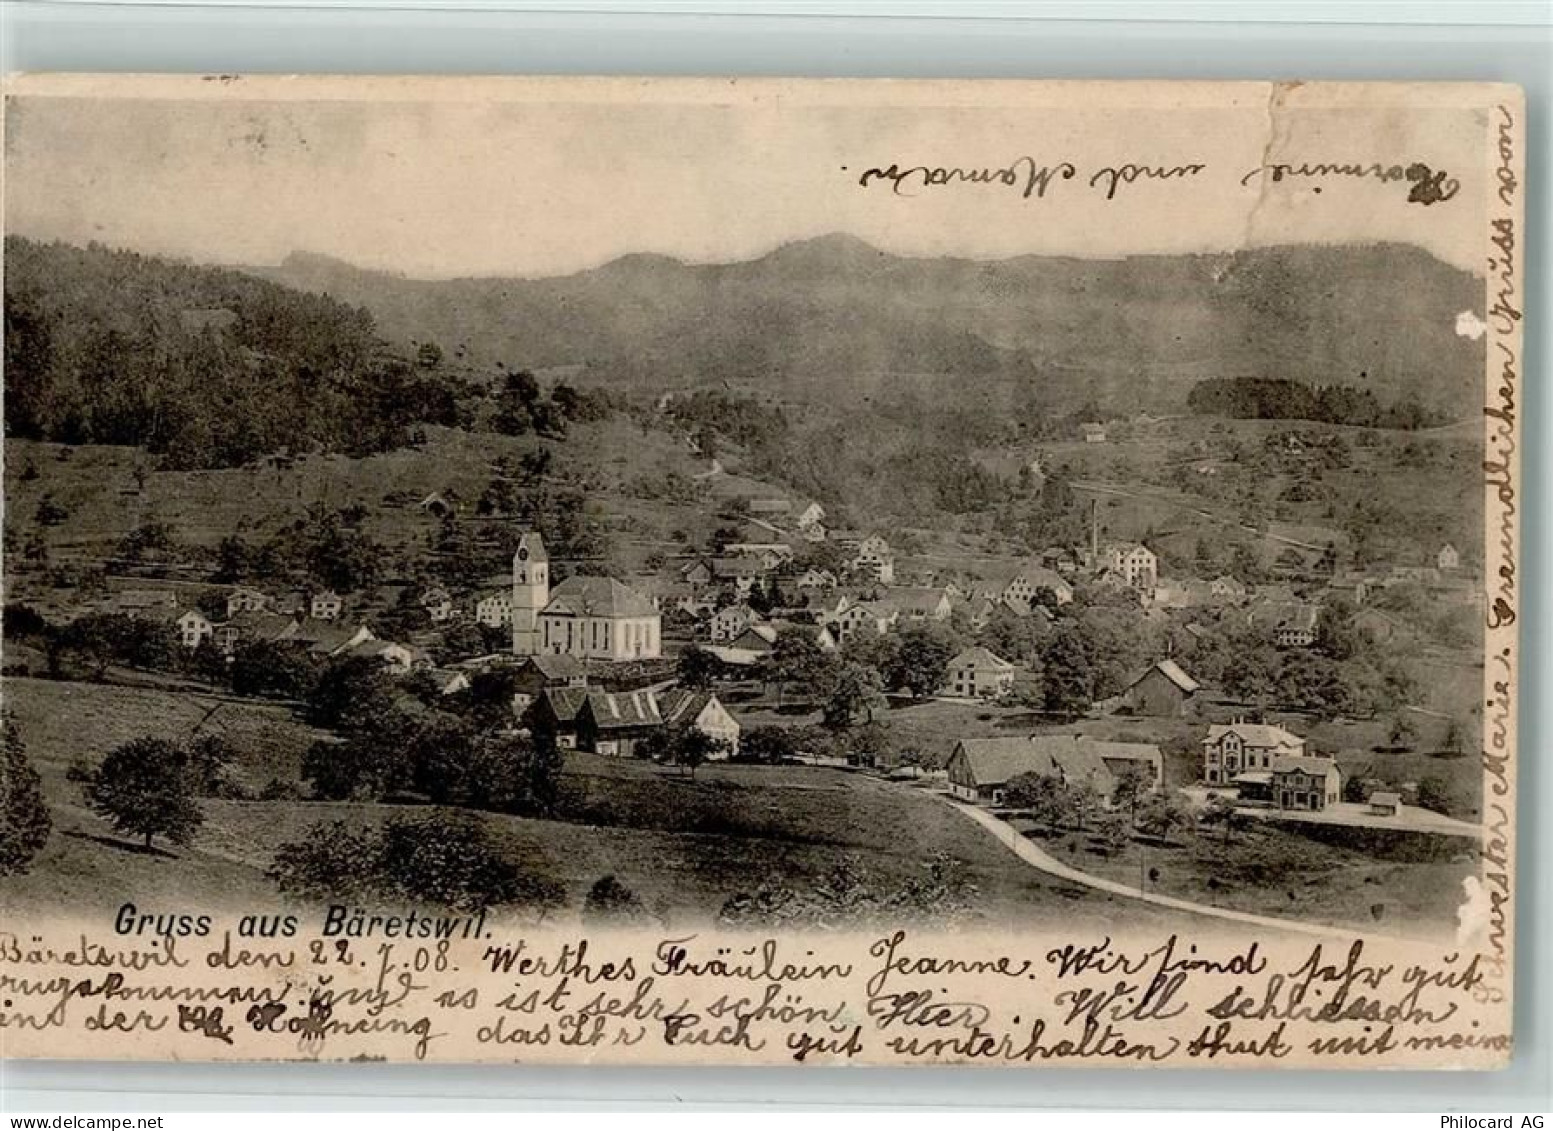 Gruss aus Bäretswil.
Bäretswil den 22. 7. 08. Werthes Fräulein Jeanne. Wir sind sehr gut
angekommen. Und es ist sehr schön Hier. Will schliessen
in der Hoffnung das Ihr Euch gut unterhalten thut mit meine
Schwester Marie. Freundlichen Gruss von
Hermine und Maman.
www.delcampe.net
Philocard AG